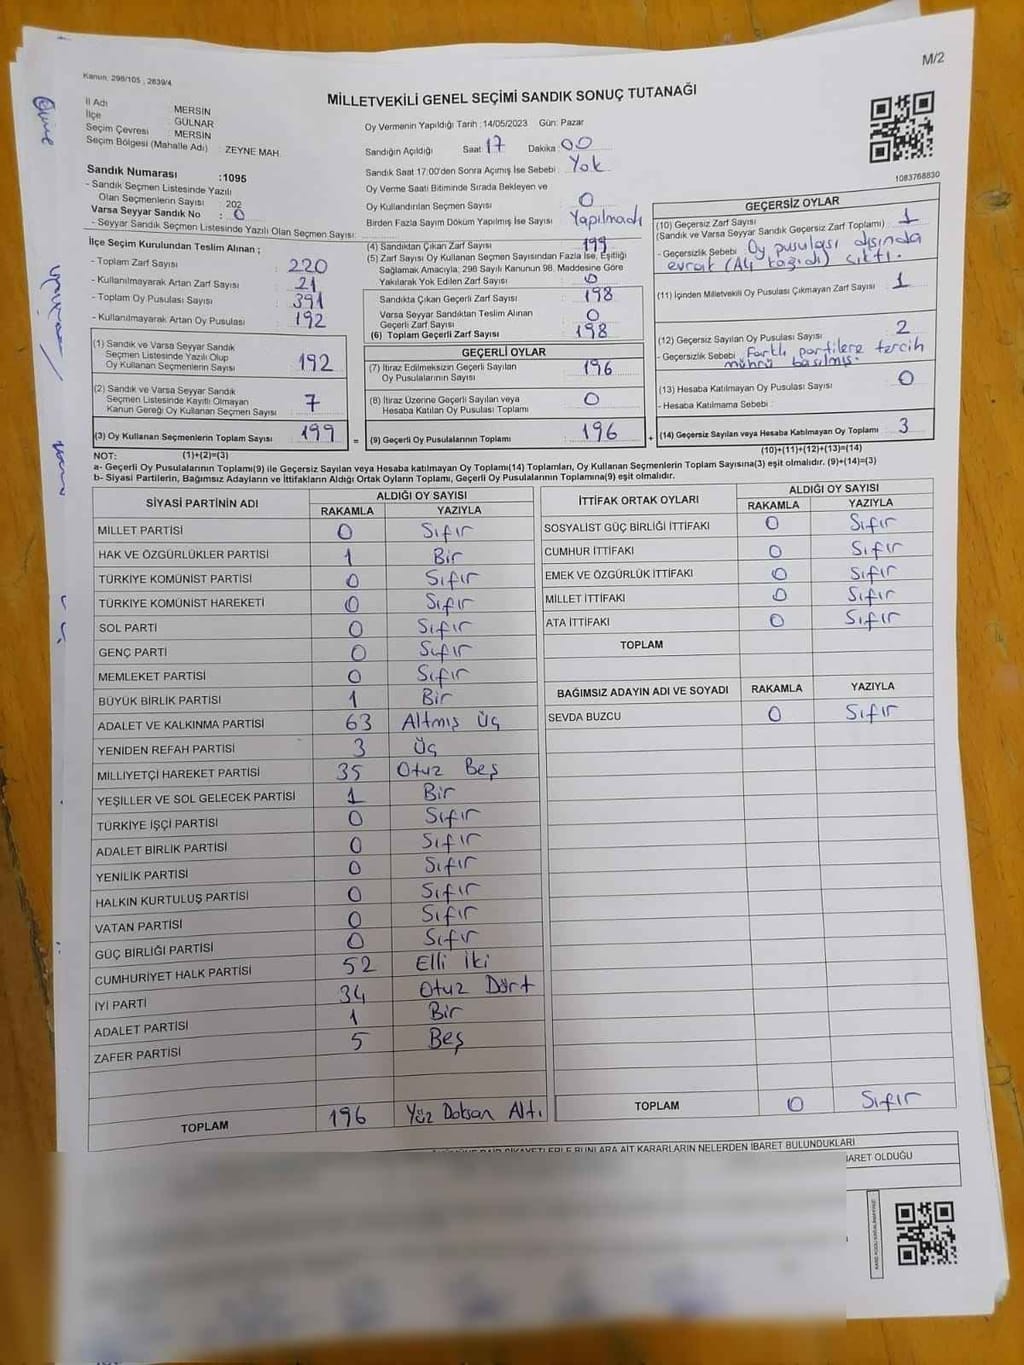 M/2
Kanun, 298/105 , 2839/4
MİLLETVEKİLİ GENEL SEÇİMİ SANDIK SONUÇ TUTANAĞI
1083768830
İl Adı MERSİN
İlçe GÜLNAR
Seçim Çevresi MERSİN
Seçim Bölgesi (Mahalle Adı) : ZEYNE MAH.
Sandık Numarası :1095
- Sandık Seçmen Listesinde Yazılı
Olan Seçmenlerin Sayısı 202
Varsa Seyyar Sandık No : 0
- Seyyar Sandık Seçmen Listesinde Yazılı Olan Seçmen Sayısı:
İlçe Seçim Kurulundan Teslim Alınan ;
- Toplam Zarf Sayısı 220
- Kullanılmayarak Artan Zarf Sayısı 21
- Toplam Oy Pusulası Sayısı 391
- Kullanılmayarak Artan Oy Pusulası 192
(1) Sandık ve Varsa Seyyar Sandık
Seçmen Listesinde Yazılı Olup
Oy Kullanan Seçmenlerin Sayısı 192
(2) Sandık ve Varsa Seyyar Sandık
Seçmen Listesinde Kayıtlı Olmayan
Kanun Gereği Oy Kullanan Seçmen Sayısı 7
(3) Oy Kullanan Seçmenlerin Toplam Sayısı 199 =
Oy Vermenin Yapıldığı Tarih :14/05/2023 Gün: Pazar
Sandığın Açıldığı Saat 17 Dakika 00
Sandık Saat 17:00'den Sonra Açımış İse Sebebi : Yok
Oy Verme Saati Bitiminde Sırada Bekleyen ve
Oy Kullandırılan Seçmen Sayısı 0
Birden Fazla Sayım Döküm Yapılmış İse Sayısı Yapılmadı
(4) Sandıktan Çıkan Zarf Sayısı 199
(5) Zarf Sayısı Oy Kullanan Seçmen Sayısından Fazla İse, Eşitliği
Sağlamak Amacıyla; 298 Sayılı Kanunun 98. Maddesine Göre
Yakılarak Yok Edilen Zarf Sayısı 0
Sandıkta Çıkan Geçerli Zarf Sayısı 198
Varsa Seyyar Sandıktan Teslim Alınan
Geçerli Zarf Sayısı 0
(6) Toplam Geçerli Zarf Sayısı 198
GEÇERLİ OYLAR
(7) İtiraz Edilmeksizin Geçerli Sayılan
Oy Pusulalarının Sayısı 196
(8) İtiraz Üzerine Geçerli Sayılan veya
Hesaba Katılan Oy Pusulası Toplamı 0
(9) Geçerli Oy Pusulalarının Toplamı 196 +
GEÇERSİZ OYLAR
(10) Geçersiz Zarf Sayısı 1
(Sandık ve Varsa Seyyar Sandık Geçersiz Zarf Toplamı)
- Geçersizlik Sebebi : Oy pusulası dışında
evrak çıktı.
(11) İçinden Milletvekili Oy Pusulası Çıkmayan Zarf Sayısı 1
(12) Geçersiz Sayılan Oy Pusulası Sayısı 2
- Geçersizlik Sebebi : Farklı partilere tercih
mührü basılmış.
(13) Hesaba Katılmayan Oy Pusulası Sayısı 0
- Hesaba Katılmama Sebebi :
(14) Geçersiz Sayılan veya Hesaba Katılmayan Oy Toplamı 3
NOT: (1)+(2)=(3) (10)+(11)+(12)+(13)=(14)
a- Geçerli Oy Pusulalarının Toplamı(9) ile Geçersiz Sayılan veya Hesaba katılmayan Oy Toplamı(14) Toplamları, Oy Kullanan Seçmenlerin Toplam Sayısına(3) eşit olmalıdır. (9)+(14)=(3)
b- Siyasi Partilerin, Bağımsız Adayların ve İttifakların Aldığı Ortak Oyların Toplamı, Geçerli Oy Pusulalarının Toplamına(9) eşit olmalıdır.
SİYASİ PARTİNİN ADI ALDIĞI OY SAYISI
RAKAMLA YAZIYLA
MİLLET PARTİSİ 0 Sıfır
HAK VE ÖZGÜRLÜKLER PARTİSİ 1 Bir
TÜRKİYE KOMÜNİST PARTİSİ 0 Sıfır
TÜRKİYE KOMÜNİST HAREKETİ 0 Sıfır
SOL PARTİ 0 Sıfır
GENÇ PARTİ 0 Sıfır
MEMLEKET PARTİSİ 0 Sıfır
BÜYÜK BİRLİK PARTİSİ 1 Bir
ADALET VE KALKINMA PARTİSİ 63 Altmış Üç
YENİDEN REFAH PARTİSİ 3 Üç
MİLLİYETÇİ HAREKET PARTİSİ 35 Otuz Beş
YEŞİLLER VE SOL GELECEK PARTİSİ 1 Bir
TÜRKİYE İŞÇİ PARTİSİ 0 Sıfır
ADALET BİRLİK PARTİSİ 0 Sıfır
YENİLİK PARTİSİ 0 Sıfır
HALKIN KURTULUŞ PARTİSİ 0 Sıfır
VATAN PARTİSİ 0 Sıfır
GÜÇ BİRLİĞİ PARTİSİ 0 Sıfır
CUMHURİYET HALK PARTİSİ 52 Elli İki
İYİ PARTİ 34 Otuz Dört
ADALET PARTİSİ 1 Bir
ZAFER PARTİSİ 5 Beş
TOPLAM 196 Yüz Doksan Altı
İTTİFAK ORTAK OYLARI ALDIĞI OY SAYISI
RAKAMLA YAZIYLA
SOSYALİST GÜÇ BİRLİĞİ İTTİFAKI 0 Sıfır
CUMHUR İTTİFAKI 0 Sıfır
EMEK VE ÖZGÜRLÜK İTTİFAKI 0 Sıfır
MİLLET İTTİFAKI 0 Sıfır
ATA İTTİFAKI 0 Sıfır
TOPLAM
BAĞIMSIZ ADAYIN ADI VE SOYADI RAKAMLA YAZIYLA
SEVDA BUZCU 0 Sıfır
TOPLAM 0 Sıfır
BUNLARA AİT KARARLARIN NELERDEN İBARET BULUNDUKLARI
İBARET OLDUĞU